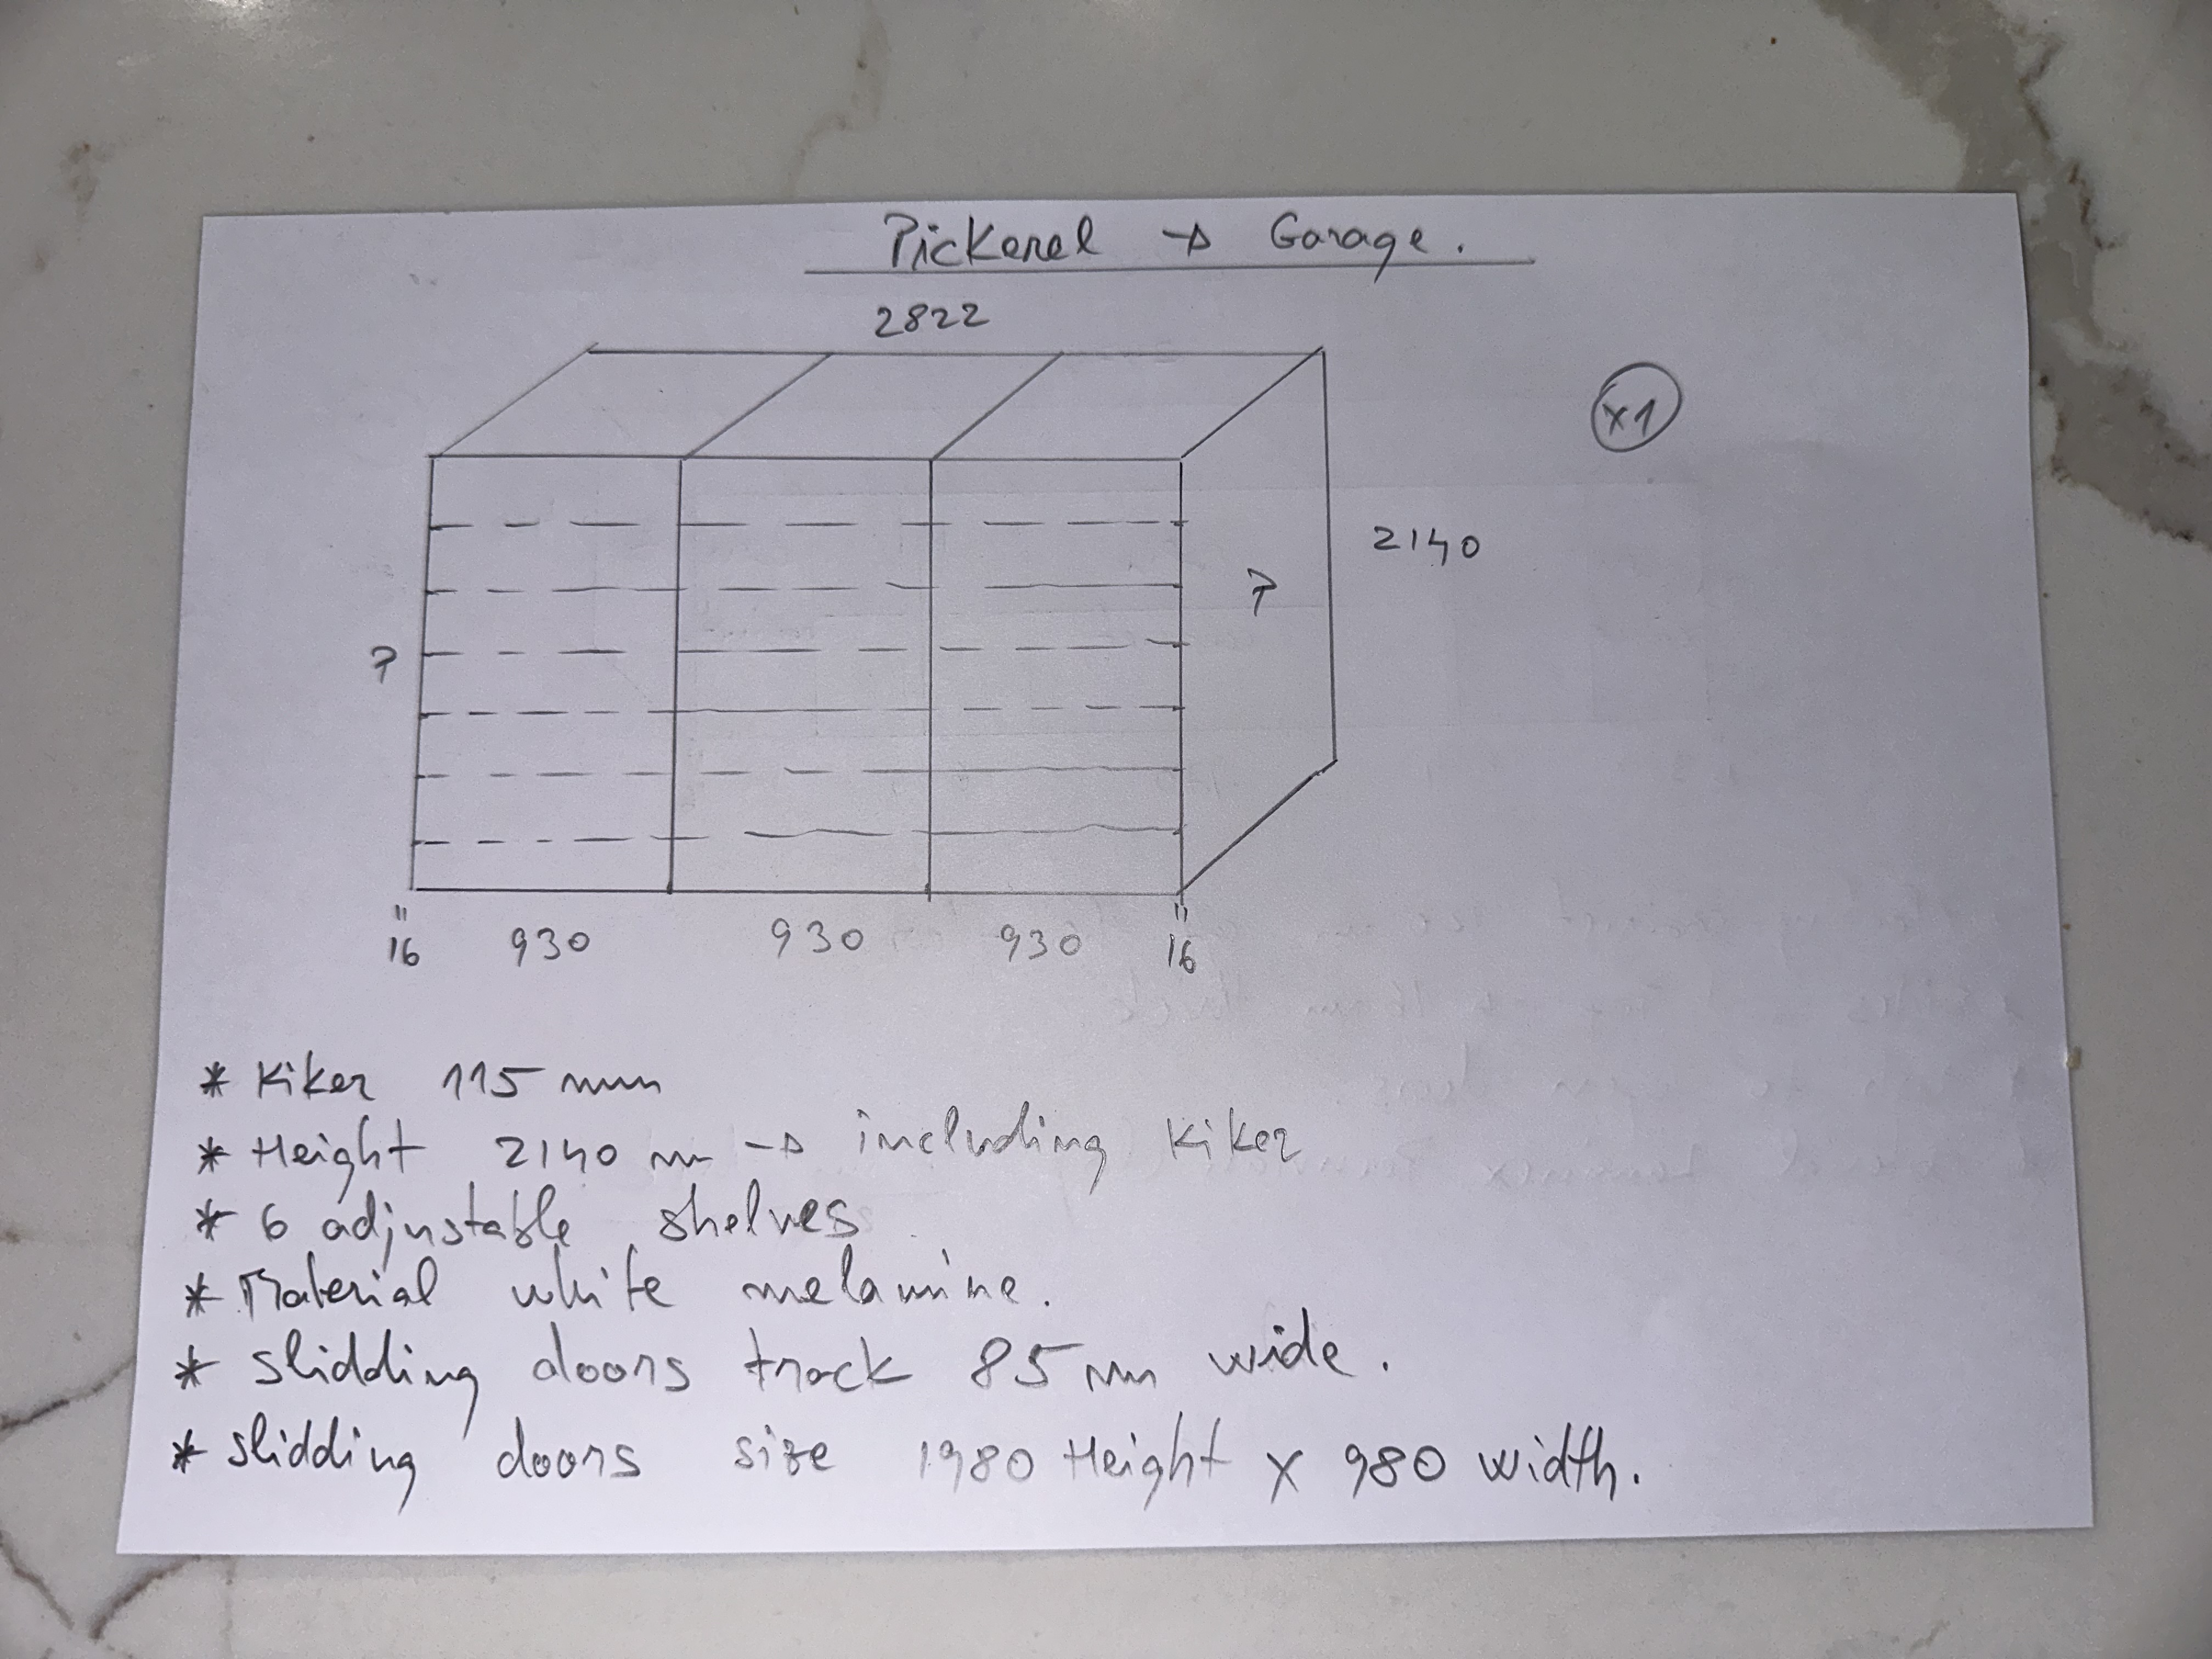 Pickerel → Garage.
2822
x1
2140
?
?
" "
16 930 930 930 16
* Kiker 115 mm
* Height 2140 mm → including Kiker
* 6 adjustable shelves
* Material white melamine.
* slidding doors track 85 mm wide.
* slidding doors size 1980 Height x 980 width.